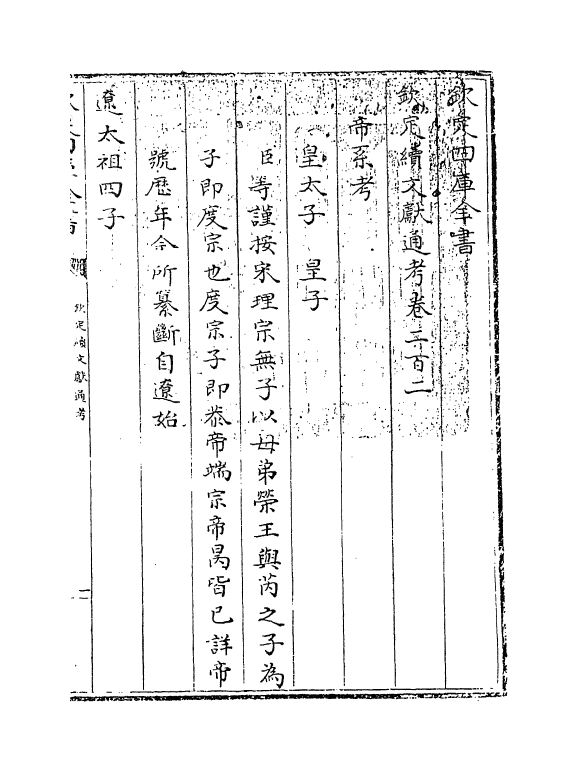 欽定四庫全書
欽定續文獻通考卷二百二
帝系考
皇太子 皇子
臣等謹按宋理宗無子以母弟榮王與芮之子為
子即度宗也度宗子即恭帝端宗帝昺皆已詳帝
號歷年今所纂斷自遼始
遼太祖四子
欽定續文獻通考
一